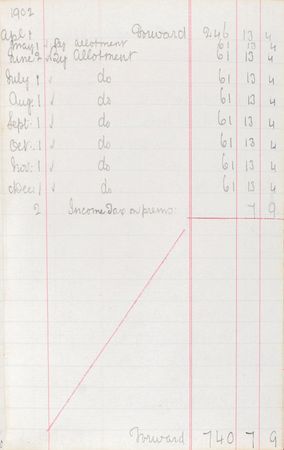 1902
Apl 1 Forward 246 13 4
May 1 √ By allotment 61 13 4
June 2 √ By Allotment 61 13 4
July 1 √ do 61 13 4
Aug. 1 √ do 61 13 4
Sept. 1 √ do 61 13 4
Oct. 1 √ do 61 13 4
Nov. 1 √ do 61 13 4
Dec. 1 √ do 61 13 4
2 Income Tax on prems: 7 9
Forward 740 7 9